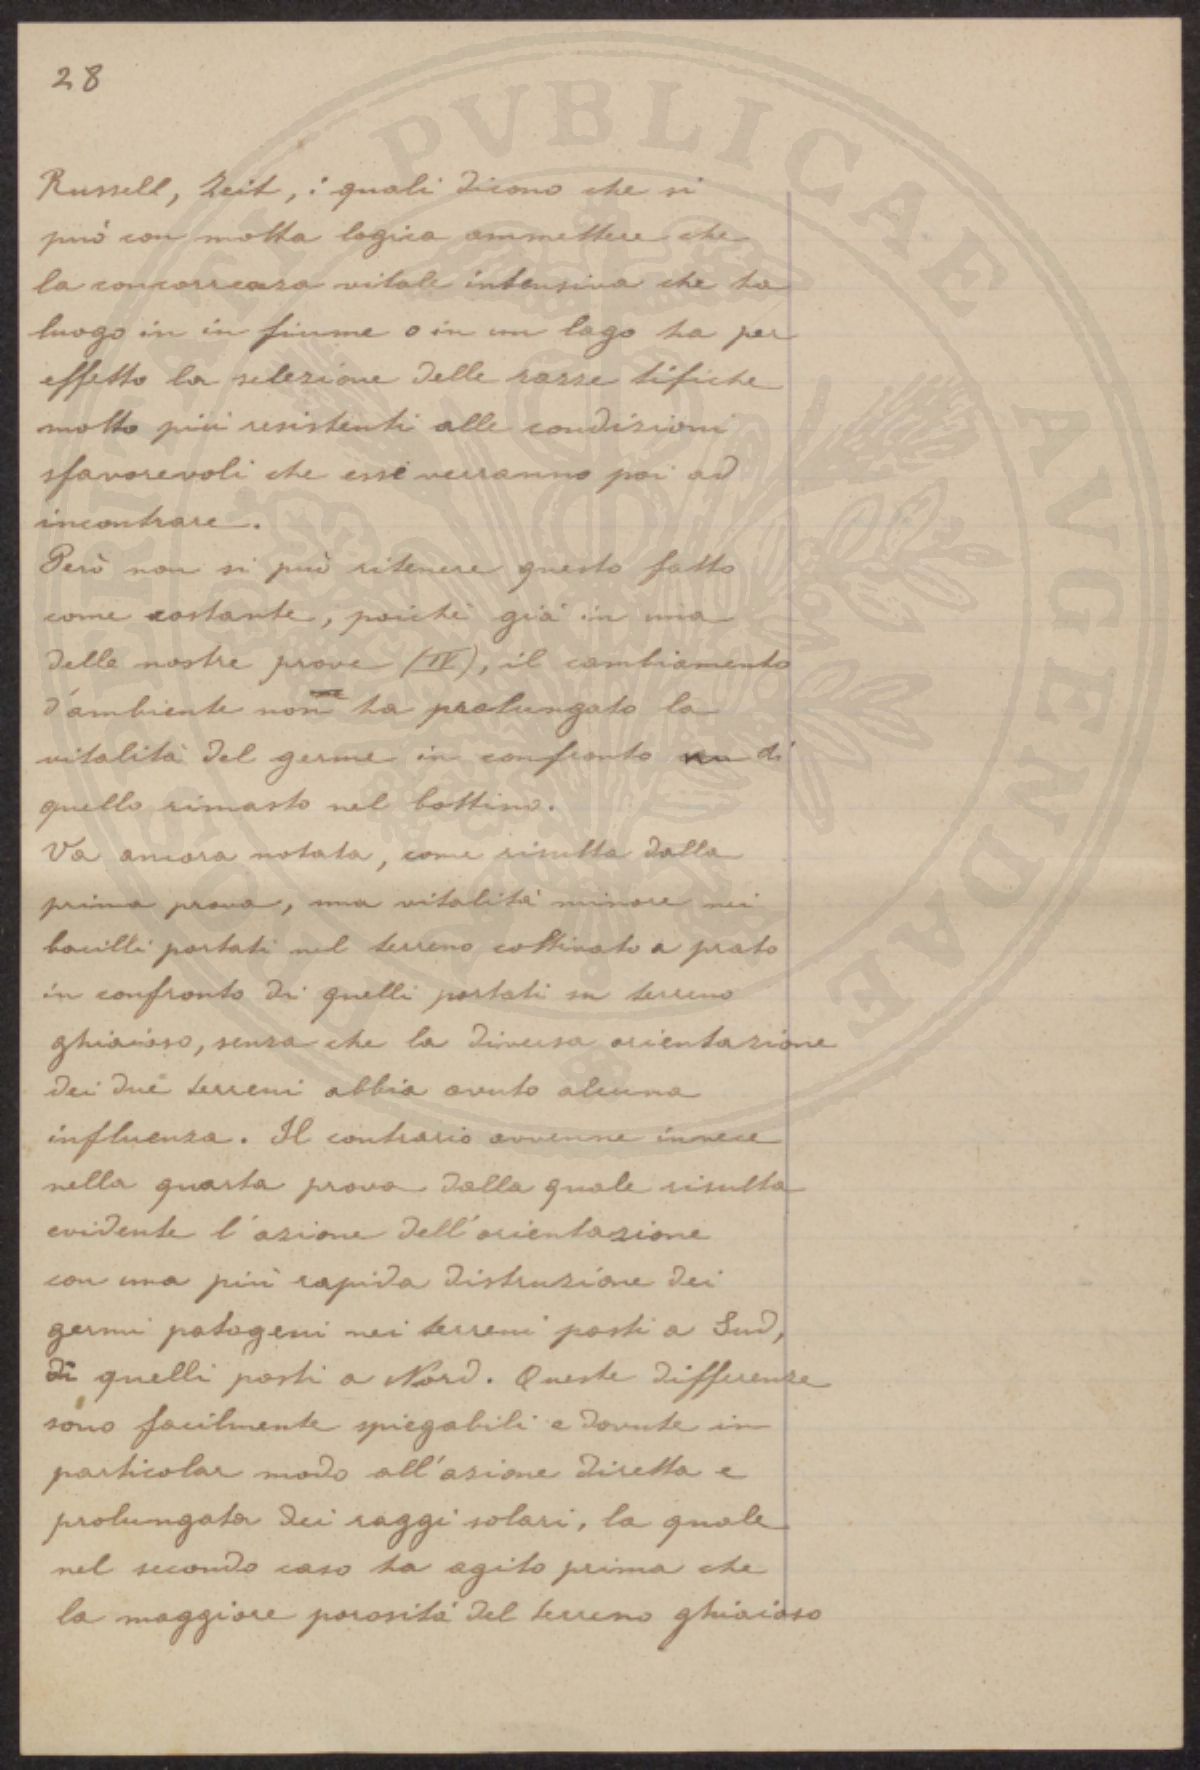 28
Russell, Zeit, i quali dicono che si
può con molta logica ammettere che
la concorrenza vitale intensiva che ha
luogo in in fiume o in un lago ha per
effetto la selezione delle razze tifiche
molto più resistenti alle condizioni
sfavorevoli che essi verranno poi ad
incontrare.
Però non si può ritenere questo fatto
come costante, poichè già in una
delle nostre prove (IV), il cambiamento
d'ambiente non ha prolungato la
vitalità del germe in confronto di
quello rimasto nel bottino.
Va ancora notata, come risulta dalla
prima prova, una vitalità minore nei
bacilli portati nel terreno coltivato a prato
in confronto di quelli portati su terreno
ghiaioso, senza che la diversa orientazione
dei due terreni abbia avuto alcuna
influenza. Il contrario avvenne invece
nella quarta prova dalla quale risulta
evidente l'azione dell'orientazione
con una più rapida distruzione dei
germi patogeni nei terreni posti a Sud,
di quelli posti a Nord. Queste differenze
sono facilmente spiegabili e dovute in
particolar modo all'azione diretta e
prolungata dei raggi solari, la quale
nel secondo caso ha agito prima che
la maggiore porosità del terreno ghiaioso
PVBLICAE AVGENDAE